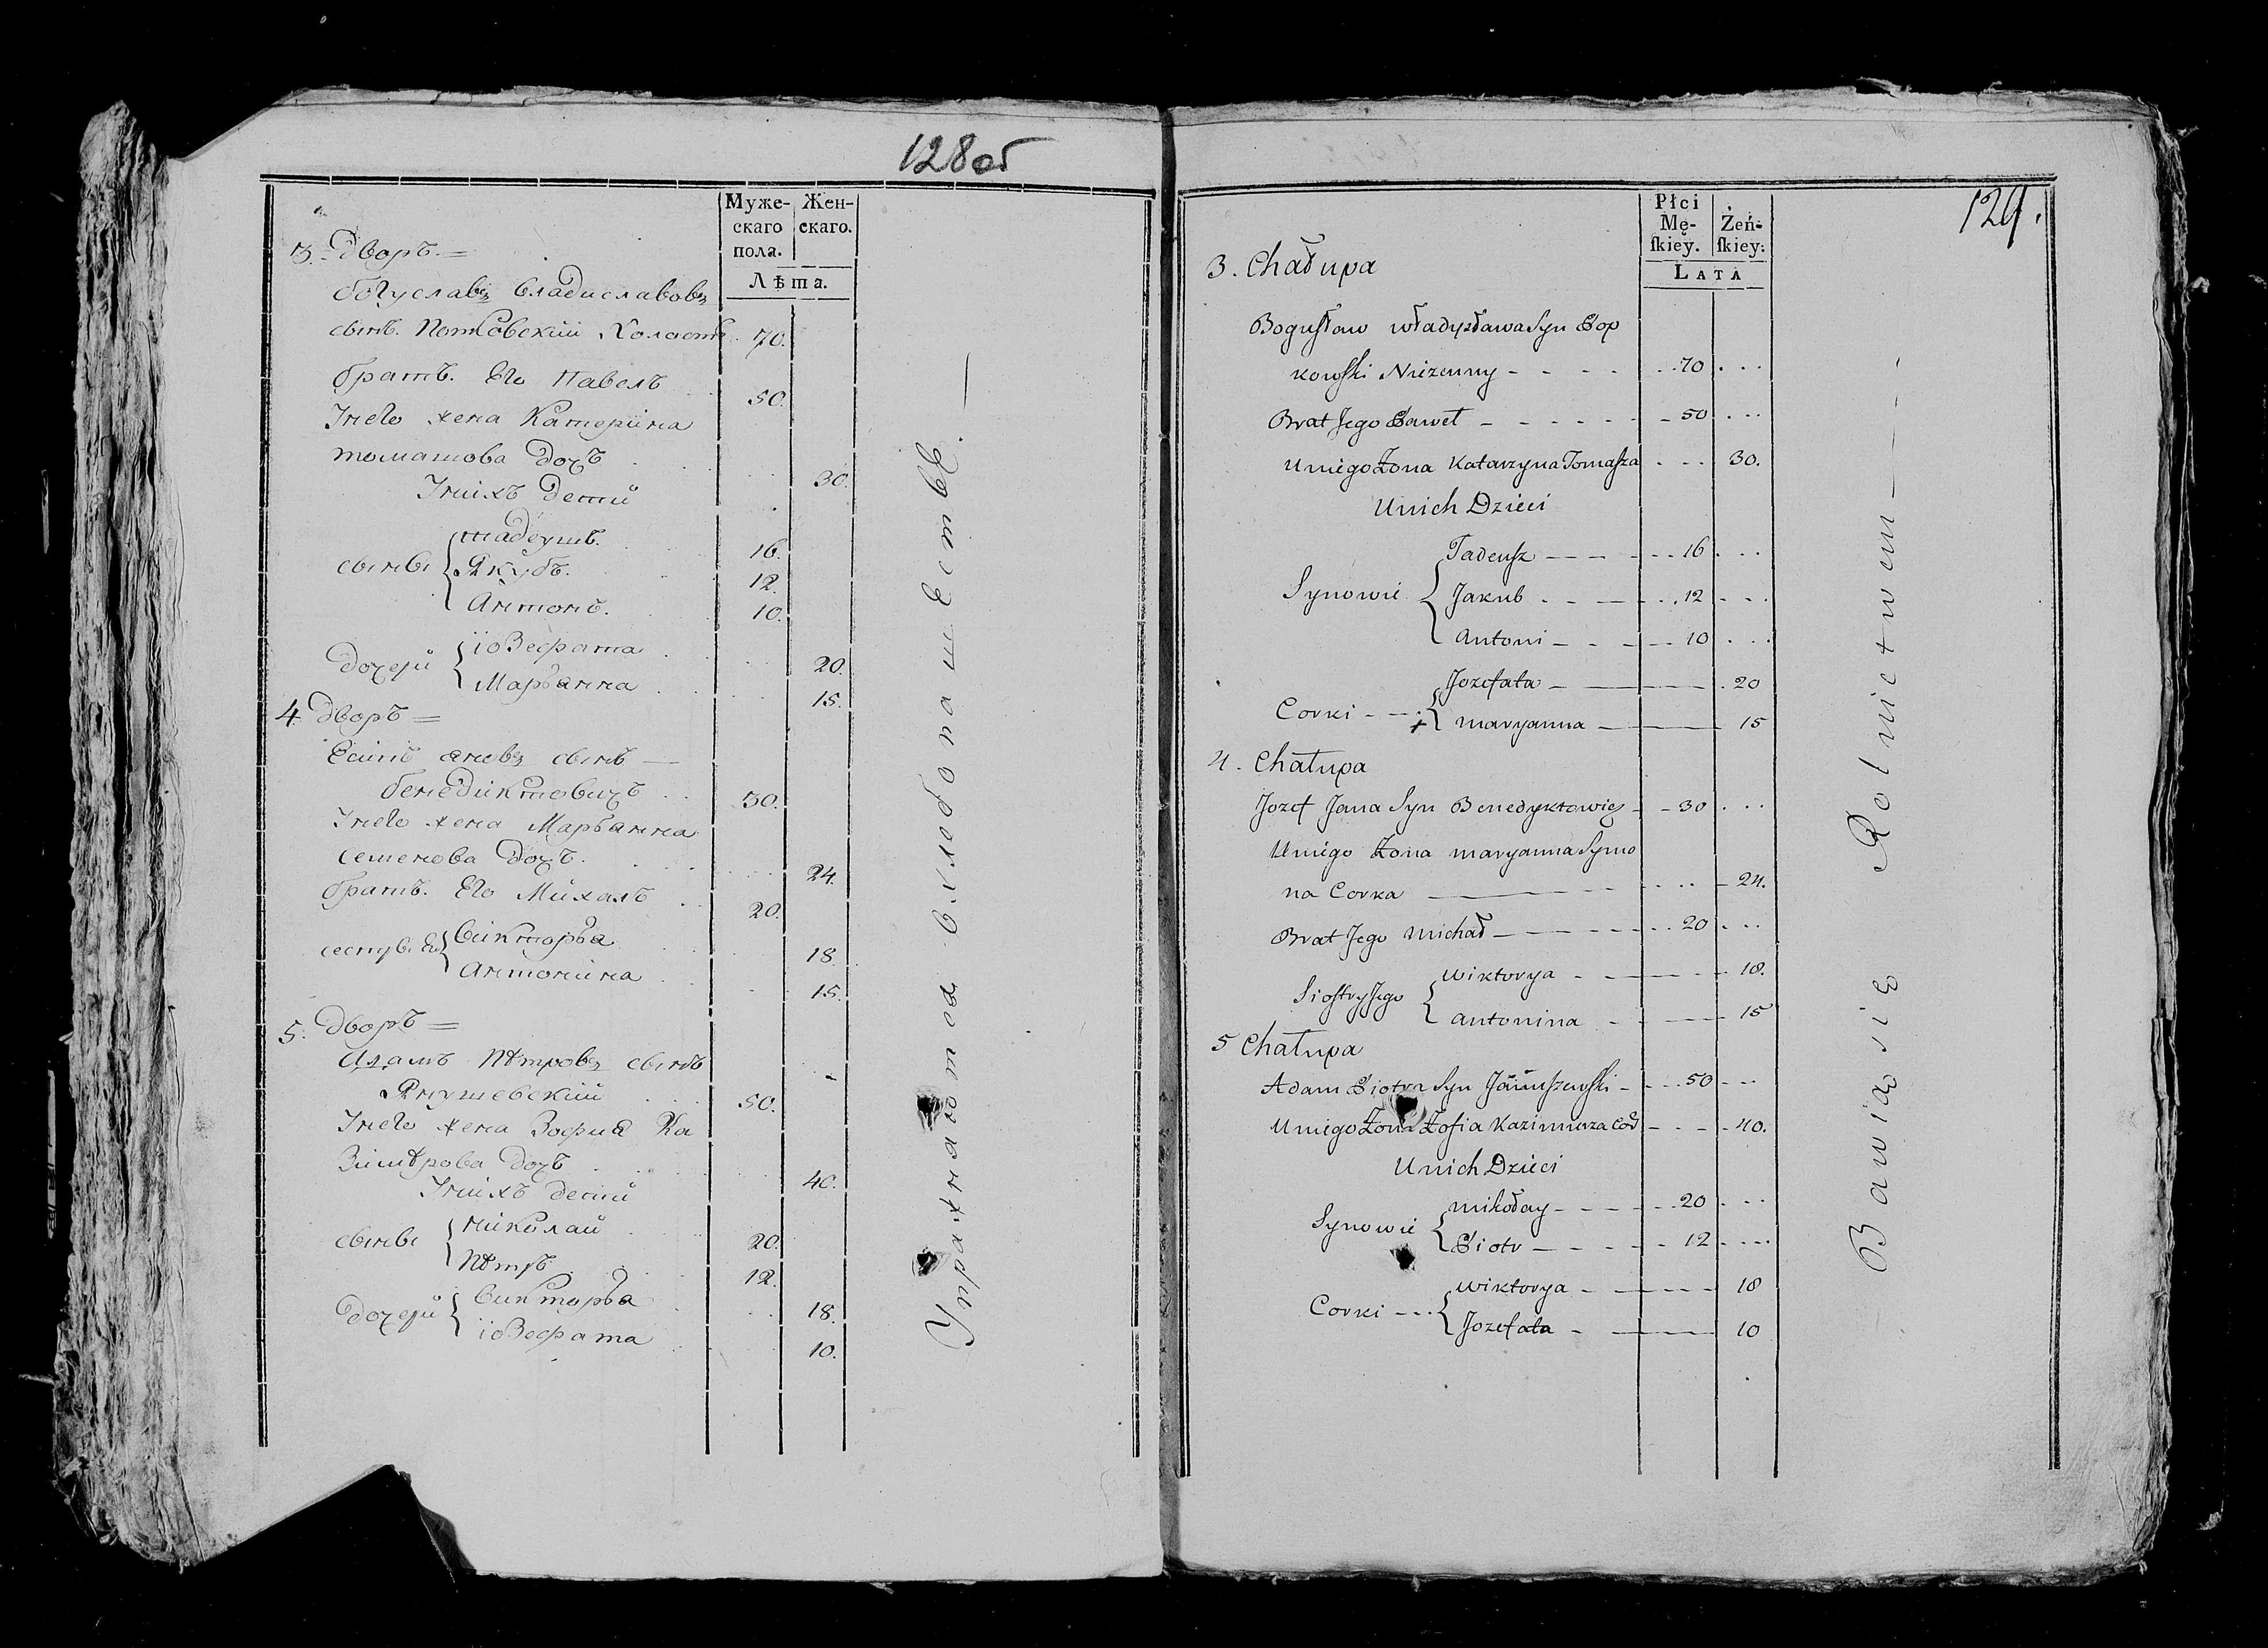 128 об
Муже-
скаго
пола.
Жен-
скаго.
Лѣта.
3. Дворъ. =
богуславъ владиславовъ
сынъ. Попковский Холостъ. 70.
братъ. Его Павелъ 50.
Унего жена Катерина
томашова дочъ 30.
Унихъ детей
сыны
тадеушъ. 16.
Якубъ. 12.
Антонъ. 10.
дочери
іозефата 20.
Марьанна 15.
4. дворъ =
Есипъ яновъ сынъ —
бенедиктовичъ 30.
Унего жена Марьанна
семенова дочъ. 24.
братъ. Его Михалъ 20.
сестры Ег
викторья 18.
Антонина 15.
5. дворъ =
Адамъ Пѣтровъ сынъ
Янушевский 50.
Унего жена Зофия Ка
зимѣрова дочъ 40.
Унихъ детей
сыны
николай 20.
Пѣтръ 12.
дочери
викторья 18.
іозефата 10.
Упражнаютса вхлебопашестве. —
129.
Płci
Mę-
ſkiey.
Żeń-
ſkiey:
LATA
3. Chałupa
Bogusław Władysława Syn Pop
kowſki Nieżenny - - - - 70 . . .
Brat Jego Paweł - - - - - 50 . . .
Uniego Żona Katarzyna Tomaſza . . . 30.
Unich Dzieci
Synowie
Tadeuſz - - - - 16 . . .
Jakub - - - 12 . . .
Antoni - - - 10 . . .
Corki - - -
Jozefata - 20
Maryanna - 15
4. Chałupa
Jozef Jana Syn Benedyktowicz - 30 . . .
Uniego Żona Maryanna Symo
na Corka - 24.
Brat Jego Michał - - - - 20 . . .
Sioſtry Jego
Wiktorya - - - 18.
Antonina - - - 15
5 Chałupa
Adam Piotra Syn Januszewſki - 50 - -
Uniego Żona Zofia Kazimierza Cod - - - 40.
Unich Dzieci
Synowie
Mikołay - - - - 20 . . .
Piotr - - - - 12 . . . .
Corki - - -
Wiktorya - - - 18
Jozefata - - - 10
Bawią się Rolnictwem — — —